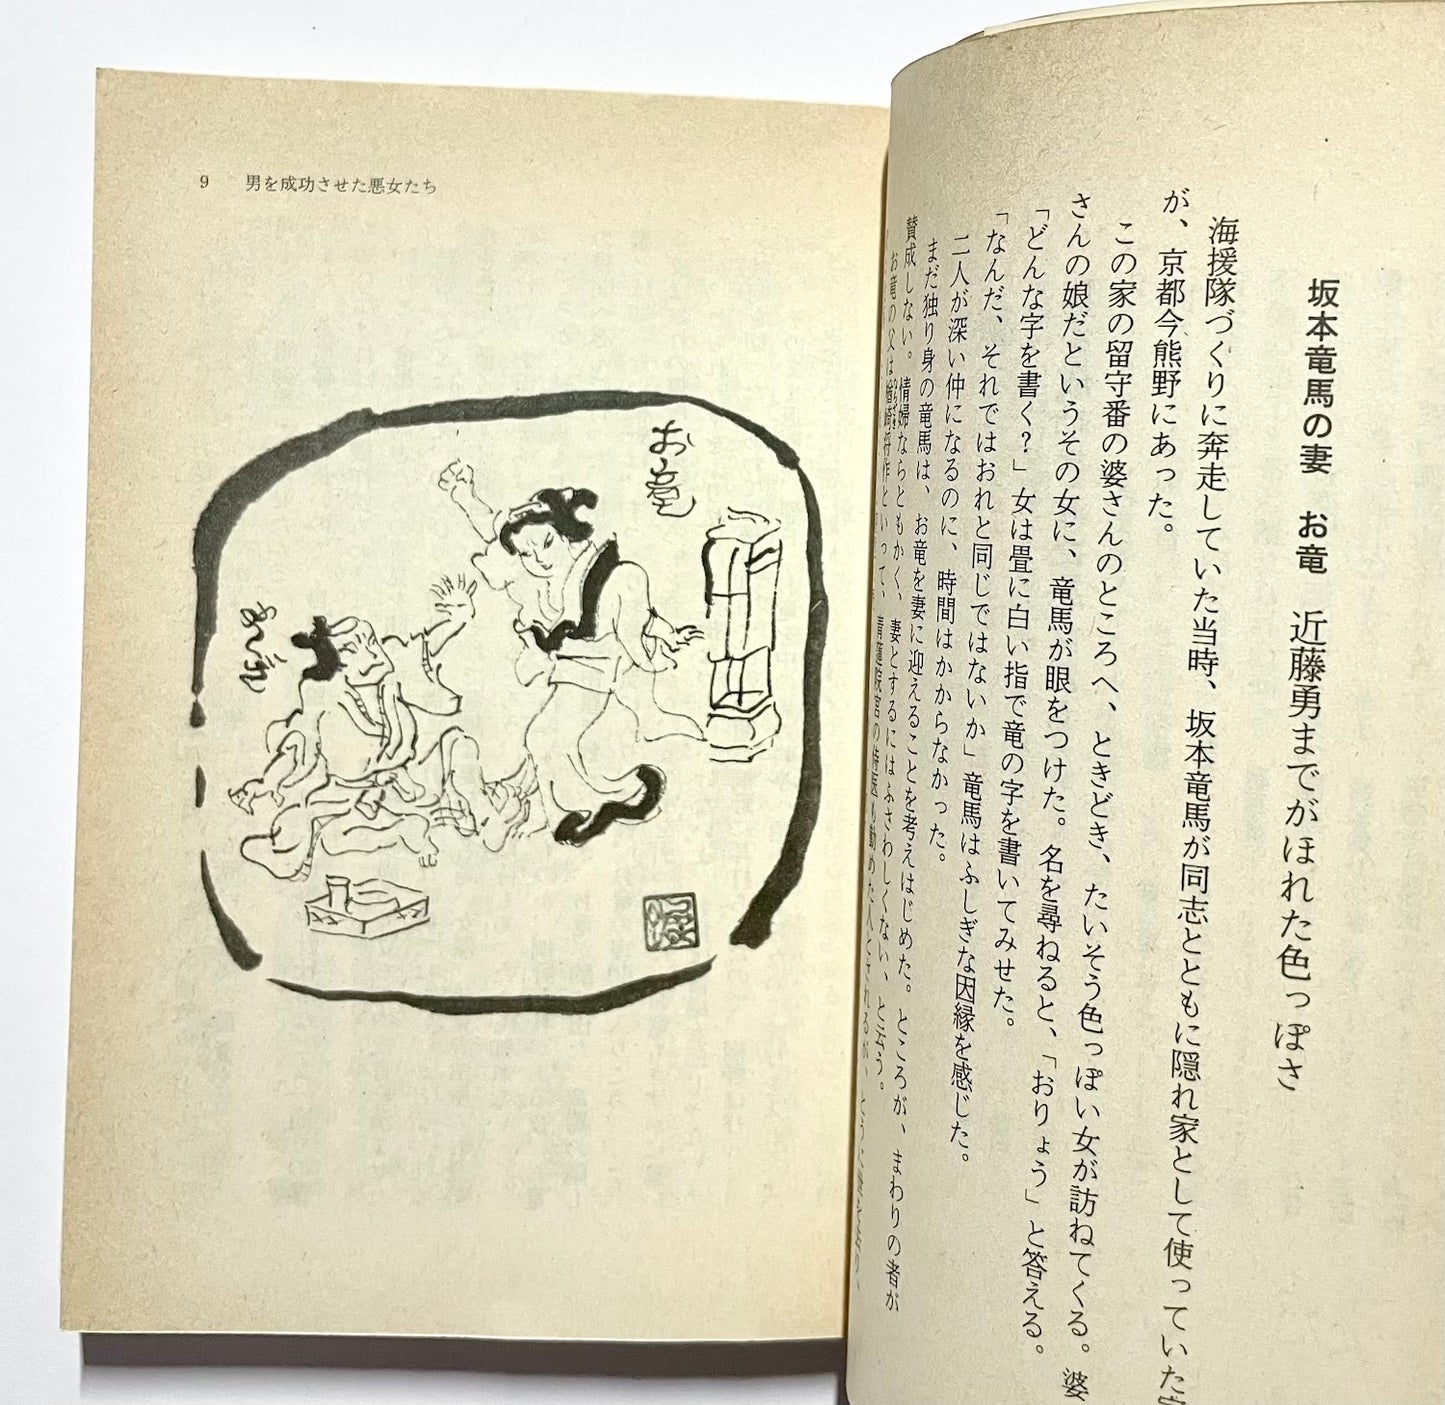 坂本竜馬の妻　お竜　近藤勇までがほれた色っぽさ
海援隊づくりに奔走していた当時、坂本竜馬が同志とともに隠れ家として使っていた
が、京都今熊野にあった。
この家の留守番の婆さんのところへ、ときどき、たいそう色っぽい女が訪ねてくる。婆
さんの娘だというその女に、竜馬が眼をつけた。名を尋ねると、「おりょう」と答える。
「どんな字を書く？」女は畳に白い指で竜の字を書いてみせた。
「なんだ、それではおれと同じではないか」竜馬はふしぎな因縁を感じた。
二人が深い仲になるのに、時間はかからなかった。
まだ独り身の竜馬は、お竜を妻に迎えることを考えはじめた。ところが、まわりの者が
賛成しない。情婦ならともかく、妻とするにはふさわしくない、と云う。
お竜の父は楢崎将作といって、青蓮院宮の侍医も勤めた人とされるが、
9　男を成功させた悪女たち
お竜